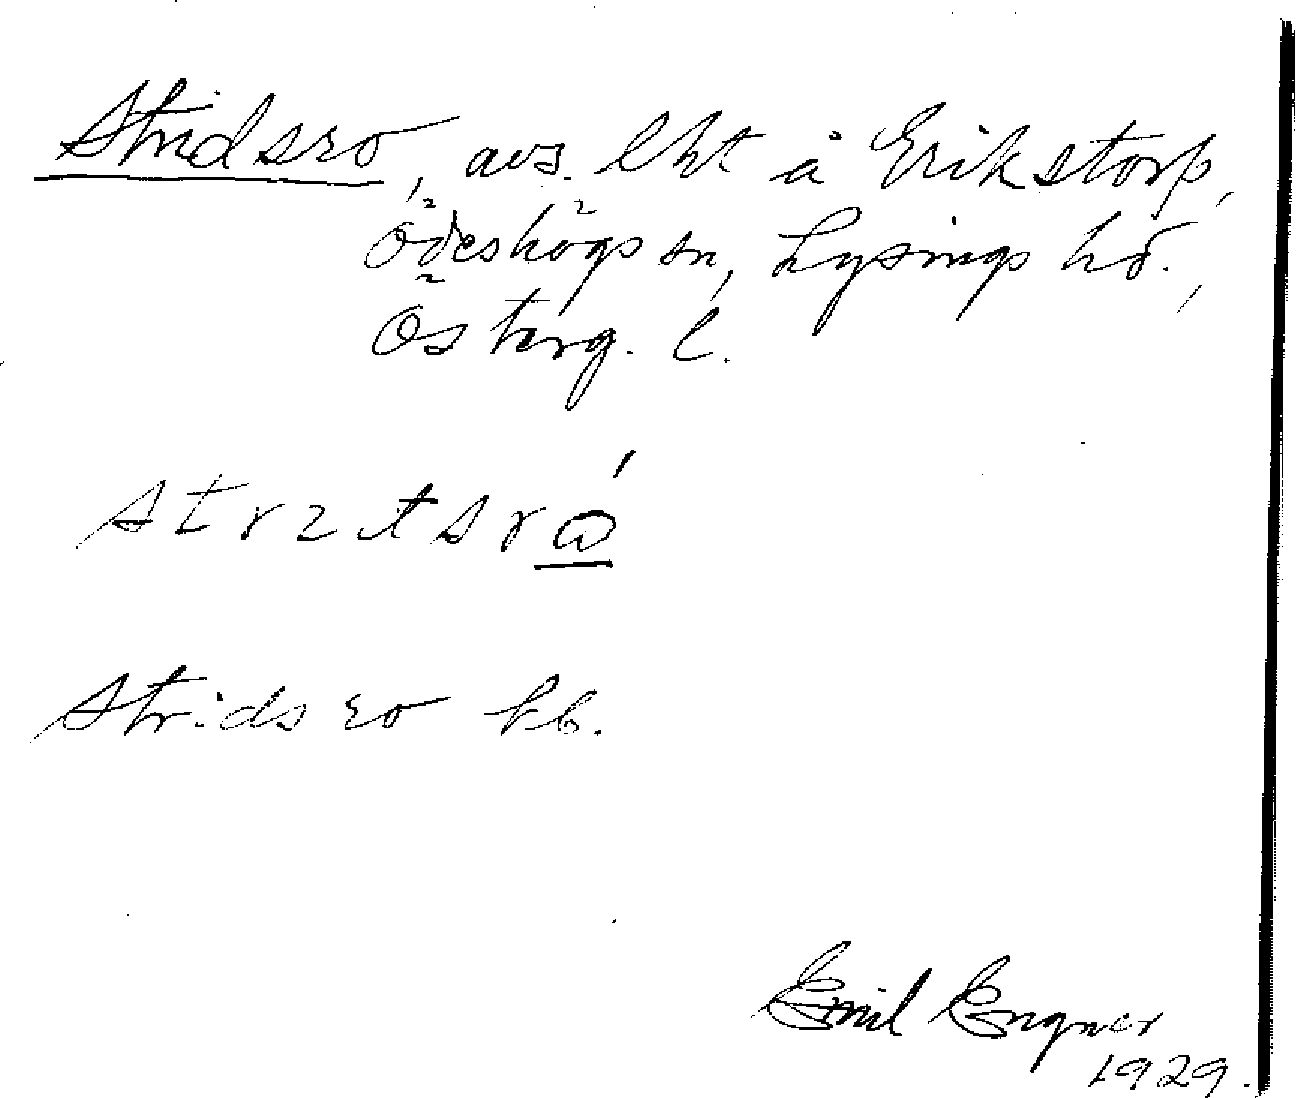 Stridsro, avs. lht å Erikstorp,
Ödeshögs sn, Lysings hd.,
Österg. l.
strɪtsró
Stridsro kb.
Emil Engner
1929.